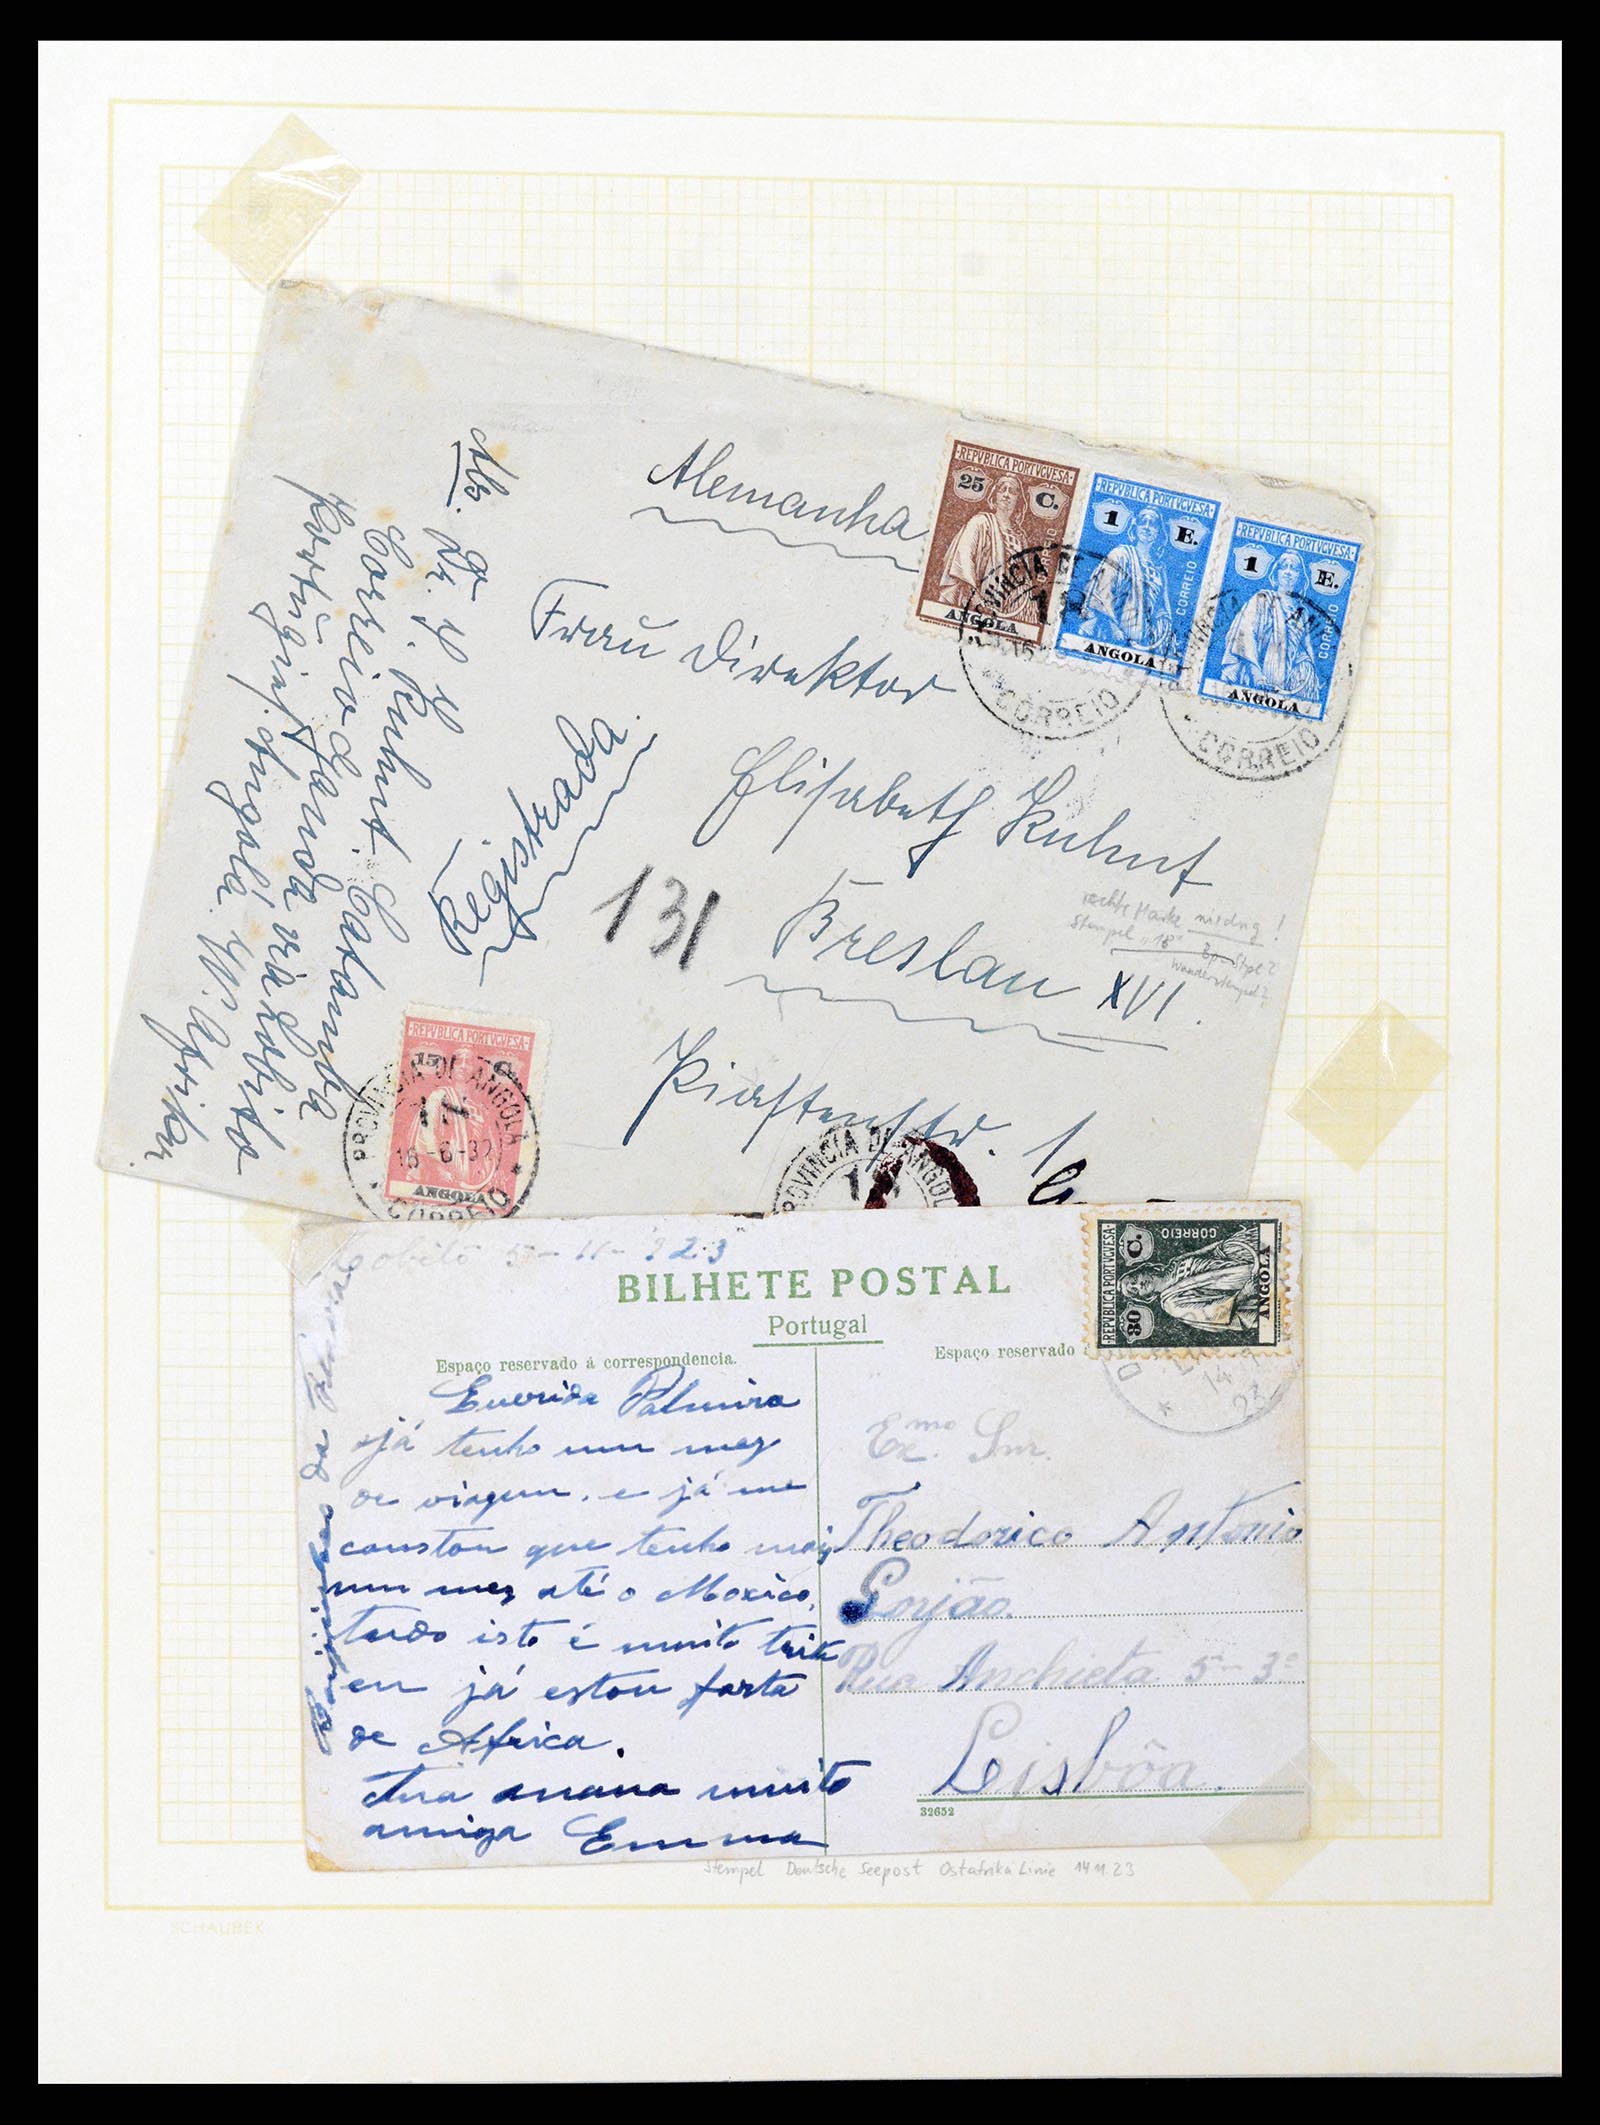 Alemanha
Frau Direktor
Elisabeth Kuhnt
Breslau XVI.
Piastenstr.
Registrada
131
Abs.
Kuhnt. Catanda
Correio da Catumbela
Portug. via Lobito
Angola. W. Afrika.
rechte Marke niedrig!
Stempel "18"
REPVBLICA PORTVGVESA
25 C.
CORREIO
ANGOLA
REPVBLICA PORTVGVESA
1 E.
CORREIO
ANGOLA
REPVBLICA PORTVGVESA
1 E.
CORREIO
ANGOLA
CORREIO
CORREIO
REPVBLICA PORTVGVESA
15 C.
ANGOLA
PROVINCIA DE ANGOLA
16-6-32
CORREIO
PROVINCIA DE ANGOLA
Lobito 5-11-923
BILHETE POSTAL
Portugal
Espaço reservado á correspondencia.
Espaço reservado
REPVBLICA PORTVGVESA
30 C.
CORREIO
ANGOLA
14
23
Querida Palmira
já tenho um mez
de viagem, e já me
constou que tenho mais
um mez até o Moxico,
tudo isto é muito triste
eu já estou farta
de Africa.
Tua mana muito
amiga Emma
Exmo. Snr.
Theodorico Antonio
Gorjão
Rua Anchieta 5-3º
Lisbôa.
32652
Stempel Deutsche Seepost Ostafrika Linie 14.11.23
SCHAUBEK